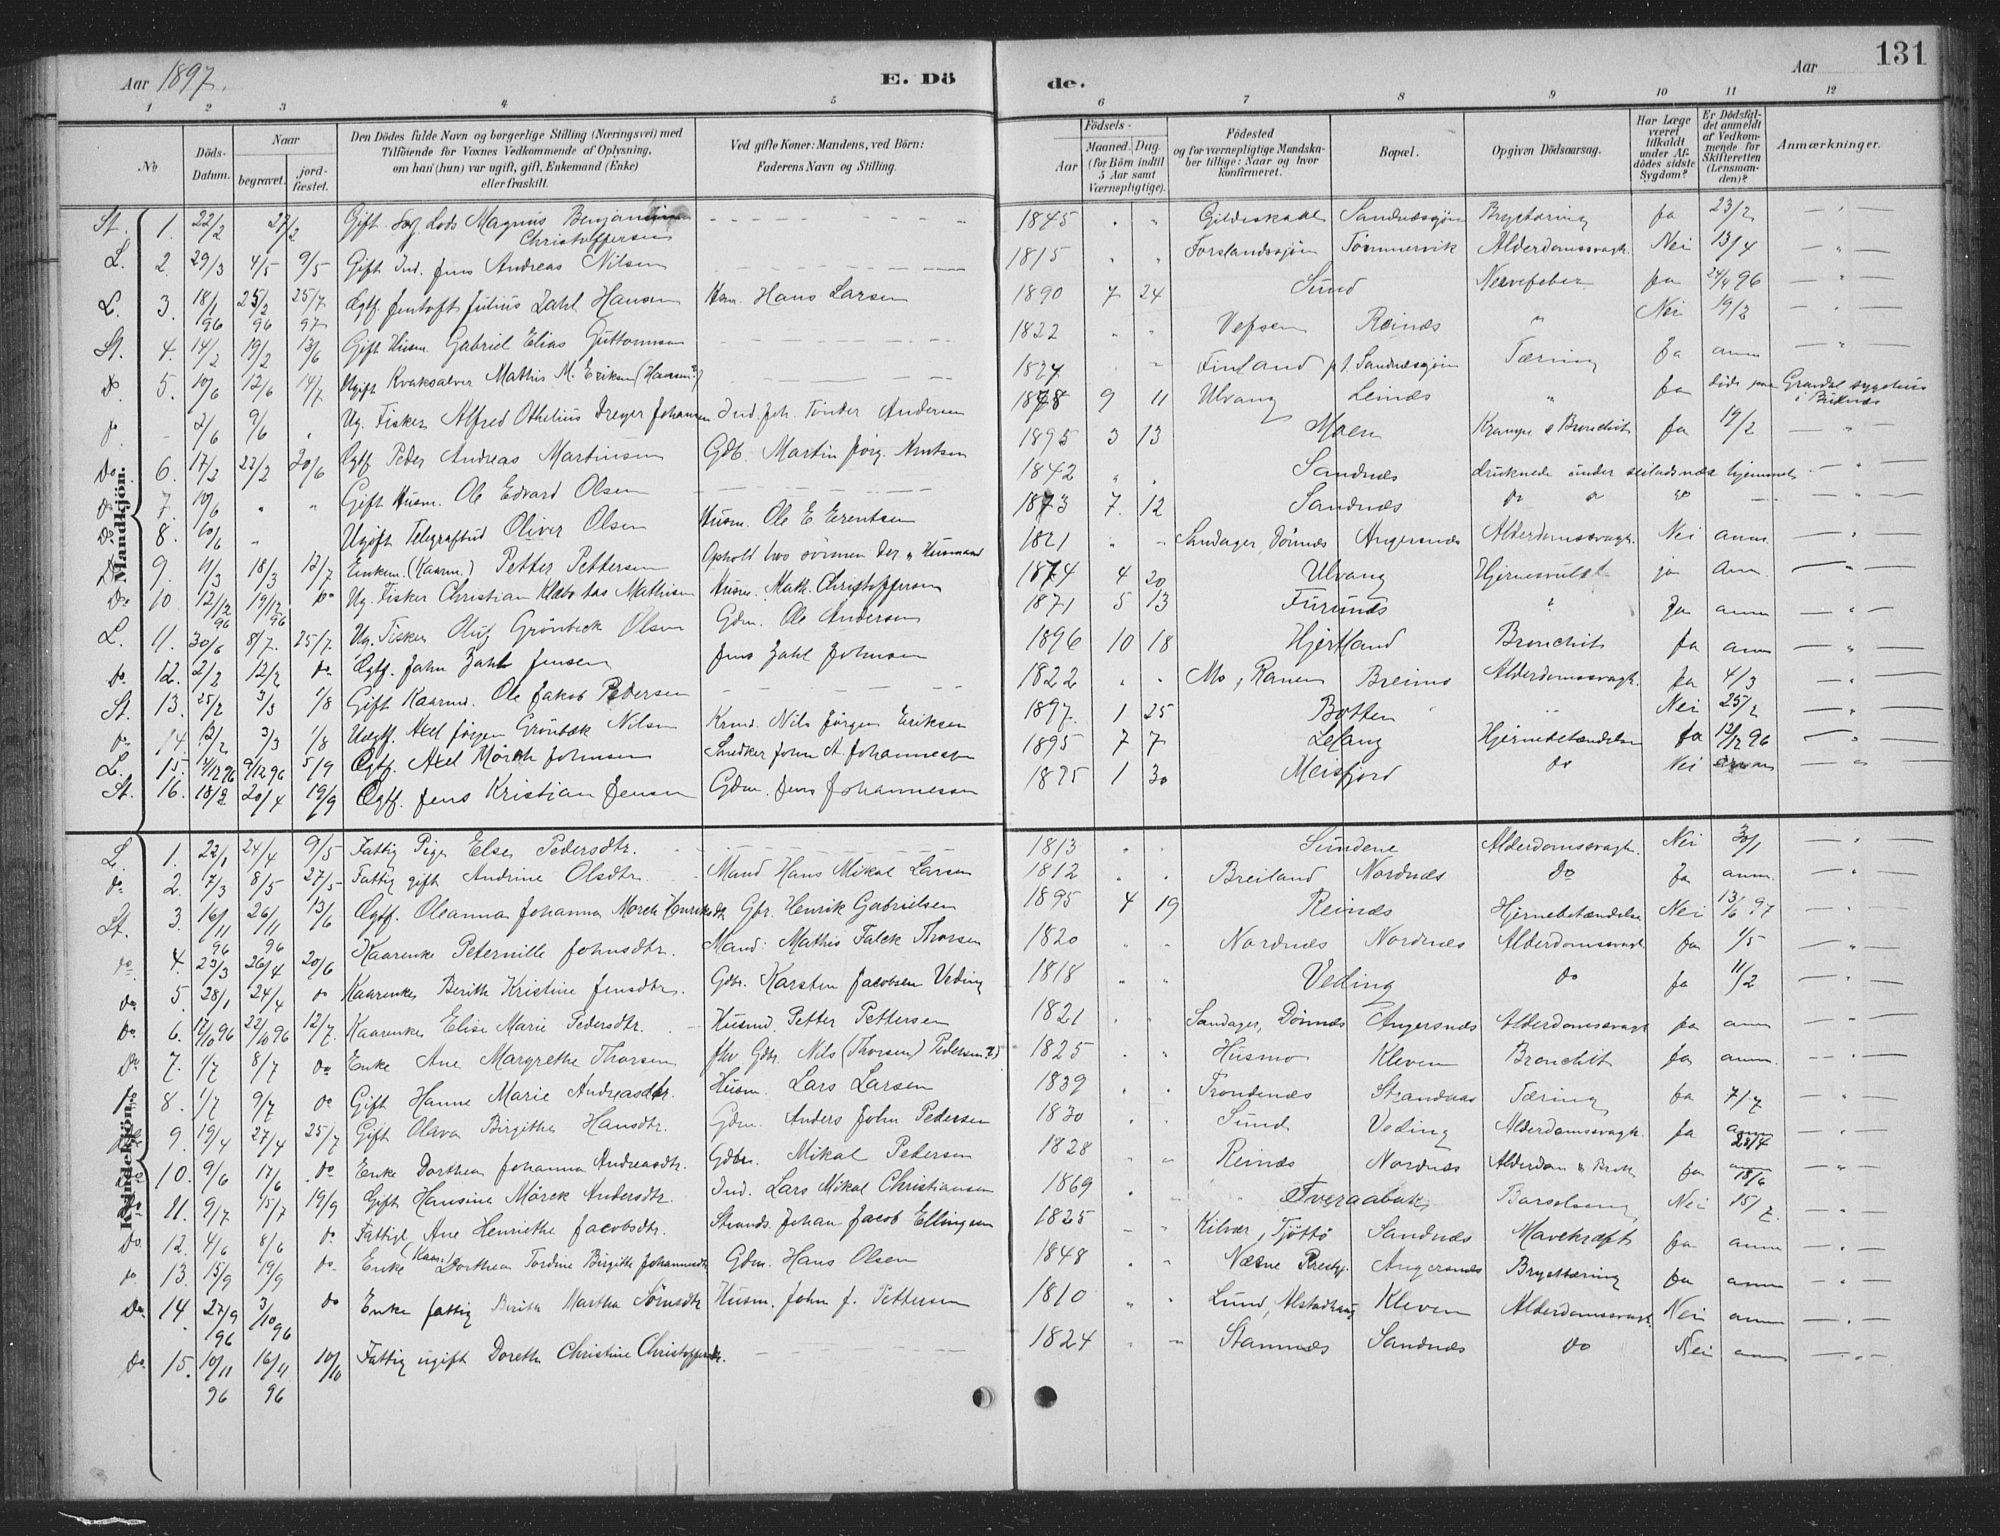 Aar 1897. E. Dö de. Aar 131
1 2 3 4 5 6 7 8 9 10 11 12
No Döds-Datum. Naar begravet. jord-fæstet. Den Dödes fulde Navn og borgerlige Stilling (Næringsvei) med Tilföiende for Voxnes Vedkommende af Oplysning, om han (hun) var ugift, gift, Enkemand (Enke) eller fraskilt. Ved gifte Koner: Mandens, ved Börn: Faderens Navn og Stilling. Födsels- Aar Maaned. Dag. (for Börn indtil 5 Aar samt Værnepligtige). Födested og for værnepligtige Mandskaber tillige: Naar og hvor konfirmeret. Bopæl. Opgiven Dödsaarsag. Har Læge været tilkaldt under Afdödes sidste Sygdom? Er Dödsfaldet anmeldt af Vedkommende for Skifteretten (Lensmanden)? Anmærkninger.
Mandkjön.
St. 1. 22/2 27/2 Gift Lods Magnus Benjamin Christoffersen 1845 " " Gildeskaal Sandnæssjøen Brysttæring Ja 23/2
L. 2. 29/3 4/5 9/5 Gift Ind. Jens Andreas Nilsen 1815 " " Forslandssjøen Tømmervik Alderdomssvagh. Nei 13/4
L. 3. 18/1 96 25/2 96 25/7 97 Ægtf. Jentoft Julius Zahl Hansen Hans Larsen 1890 7 24 Sund Nervefeber Ja 24/4 96
St. 4. 14/2 19/2 13/6 Gift Husm. Gabriel Elias Guttormsen 1822 " " Vefsen Reinæs " Nei 19/2
5. 10/6 12/6 14/7 Ugift Kvaksalver Mathis M. Eriksen (Hansen?) 1827 " " Finland p.t. Sandnæssjøen Tæring Ja anm
- 2/6 9/6 " Ug. Fisker Alfred Othelius Dreyer Johansen Ind. Joh. Tønder Andersen 1878 9 11 Ulvang Leinæs " Ja døde paa Gravdal sygehus i Buknæs
Do 6. 17/2 22/2 20/6 Ægtf. Peder Andreas Martinsen Gdb. Martin Jørg. Knutsen 1895 3 13 Moen Krampe & Bronchit Ja 19/2
Do 7. 10/6 " " Gift Husm. Ole Edvard Olsen 1842 " " Sandnæs druknede under seilads hjemmet
Do 8. 10/6 " Ugift Telegrafbud Oliver Olsen Husm. Ole E. Erentsen 1873 7. 12 Sandnæs do " "
9. 11/3 18/3 12/7 Enkem. (Kaarm.) Petter Pettersen Ophold hos svinnen Der " Husmand 1821 " " Sandager, Dønnæs Angersnæs Alderdomssvagh. Nei anm.
Do 10. 12/12 96 19/12 96 Do Ug. Fisker Christian Mathisen Husm. Math. Christoffersen 1874 4 20 Ulvang Hjernesvulst ja Anm.
L. 11. 30/6 8/7. 25/7. Ug. Fisker Oluf Grønbeck Olsen Gdm. Ole Andersen 1871 5 13 Furunæs " Ja anm
do. 12. 2/2 12/2 do Ægtf. John Zahl Jensen Jens Zahl Johnsen 1896 10 18 Hjertland Bronchit Ja anm
St. 13. 25/2 3/3 1/8 Gift Kaarmd. Ole Jakob Pedersen 1822 " " Mo, Ranen Breimo Alderdomssvagh. Ja 4/3
do 14. 12/2 3/3 1/8 Uægtf. Axel Jørgen Grønbæk Nilsen Krmd. Nils Jørgen Eriksen 1897. 1 25 Botten " Nei 25/2
L. 15. 4/12 96 9/12 96 5/9 Ægtf. Axel Mörch Johnsen Snedker John A. Johannessen 1895 7 7 Leland Hjernebetændelse Ja 12/12 96
St. 16. 18/2 20/4 19/9 Ægtf. Jens Kristian Jensen Gdm. Jens Johannessen 1895 1 30 Meisfjord do Nei
Kvindekjön.
L. 1. 22/1 24/4 9/5 Fattig Pige Else Pedersdtr. 1813 " " Sundene Alderdomssvagh. Nei 30/1
do 2. 7/3 8/5 27/5 Fattig gift Andrine Olsdtr. Mand Hans Mikal Larsen 1812 " " Breiland Nordnæs Do Ja anm.
St. 3. 16/11 96 26/11 96 13/6 Ægtf. Oleanna Johanna Mörch Henriksdtr. Gbr. Henrik Gabrielsen 1895 4 19 Reinæs Hjernebetændelse Nei 13/6 97
do 4. 23/3 26/4 20/6 Kaarenke Petternille Johnsdtr. Mand: Mathis Falck Thorsen 1820 " " Nordnæs Nordnæs Alderdomssvagh Ja 1/5
do 5. 28/1 24/4 do Kaarenke Berith Kristine Jensdtr. Gdbr. Karsten Jacobsen Veding 1818 " " Veding Do Ja 11/2
Do 6. 17/10 96 22/10 96 12/7. Kaarenke Elise Marie Pedersdtr. Husmd. Petter Pettersen 1821 Sandager, Dønnæs Angersnæs Alderdomssvagh Ja anm
Do 7. 1/7 8/7 do Enke Ane Margrethe Thorsen fhv. Gdbr. Nils (Thorsen) Pedersen 1825 " " Husmo Kleven Bronchit Ja anm.
Do 8. 1/7 9/7 do Gift Hanne Marie Andreasdtr. Husm. Lars Larsen 1839 " " Trondenæs Strandnæs Tæring Ja 7/7
9. 19/4 27/4 25/7 Gift Olava Birgitha Hansdtr. Gdm. Anders John Pedersen 1830 " " Sund Veding Alderdomssvagh. Ja 28/4
10. 9/6 17/6 do Enke Dorthea Johanna Andreasdtr. Gdbr. Mikal Pedersen 1828 " " Reinæs Nordnæs Alderdom & Bronk. Ja 18/6
11. 9/7 15/7 19/9 Gift Hansine Mörck Andersdtr. Ind. Lars Mikal Christiansen 1869 " " Tveraabak Barselseng Nei 15/7.
Do 12. 4/6 8/6 do Fattigl. Ane Henriethe Jacobsdtr. Strands. Johan Jacob Ellingsen 1825 " " Kilvær, Tjøttø Sandnæs Mavekræft Ja anm
do 13. 15/9 19/9 do Enke (Kaar.) Dorthea Tordine Birgithe Johannesdtr Gdm. Hans Olsen 1848 " " Næsne Prestgj. Angersnæs Brysttæring Ja anm
Do 14. 27/9 96 3/10 96 do Enke fattig Berith Martha Husm. John J. Pettersen 1810 " " Lund, Alstadhaug Kleven Alderdomssvagh. Nei anm
Do 15. 10/11 96 16/11 96 10/10 Fattig ugift Doreth Christine Christoffersdtr. 1824 " " Stamnæs Sandnæs do Nei anm